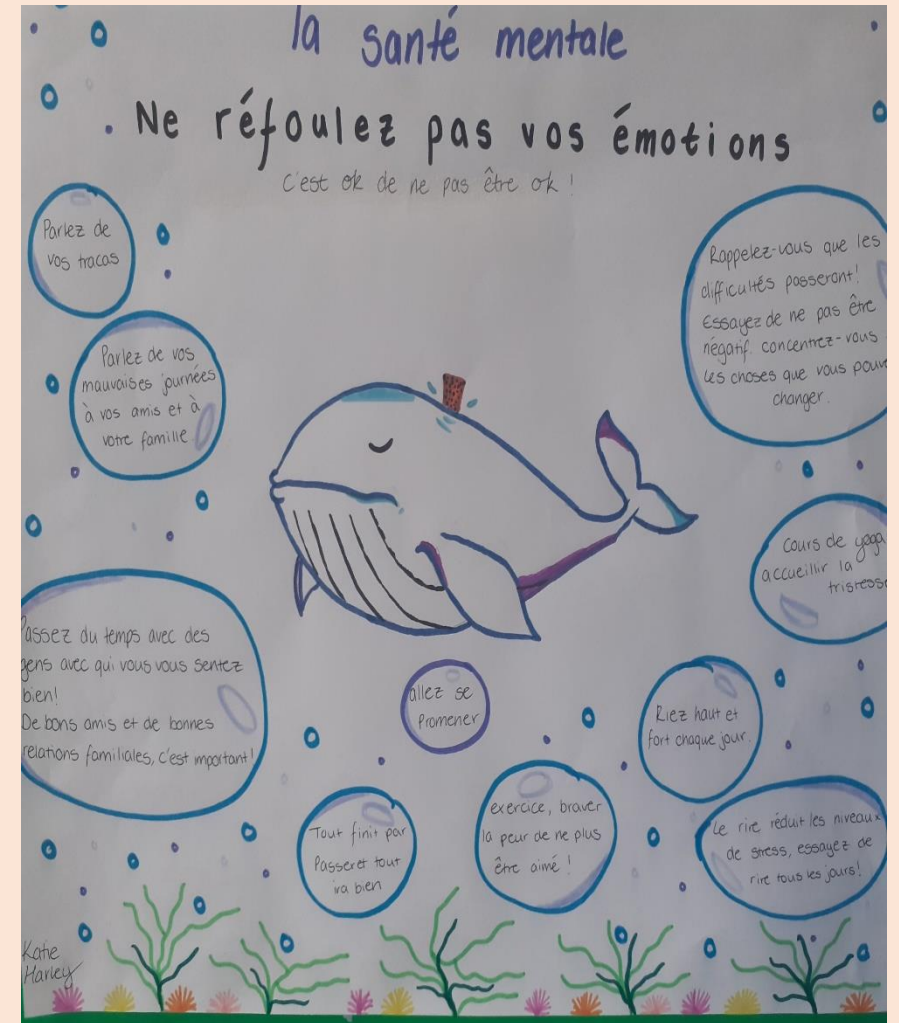 la santé mentale
Ne réfoulez pas vos émotions
C'est ok de ne pas être ok !
Parlez de
vos tracas
Parlez de vos
mauvaises journées
à vos amis et à
votre famille
Rappelez-vous que les
difficultés passeront!
Essayez de ne pas être
négatif. concentrez-vous
les choses que vous pouve
changer.
Cours de yoga
accueillir la
tristesse
Passez du temps avec des
gens avec qui vous vous sentez
bien!
De bons amis et de bonnes
relations familiales, c'est important!
allez se
Promener
Riez haut et
fort chaque jour.
Tout finit par
Passeret tout
ira bien
exercice, braver
la peur de ne plus
être aimé !
Le rire réduit les niveaux
de stress, essayez de
rire tous les jours!
Katie
Harley